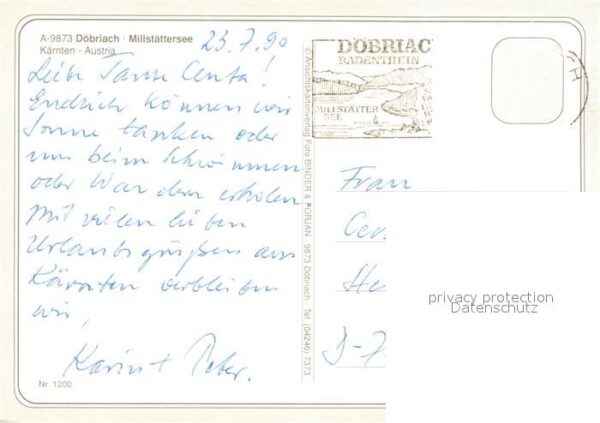 A-9873 Döbriach · Millstättersee
Kärnten - Austria
23.7.90
Liebe Tante Centa!
Endlich können wir
Sonne tanken oder
uns beim Schwimmen
oder Wandern erholen
Mit vielen lieben
Urlaubsgrüßen aus
Kärnten verbleiben
wir,
Karin + Peter.
Nr. 1200
© Ansichtskartenverlag Foto BINDER & KORJAN · 9873 Döbriach · Tel. (04246) 7373
DÖBRIAC
BADENTHEIN
MILLSTÄTTER
SEE
Frau
Cen
He
D-7
privacy protection
Datenschutz